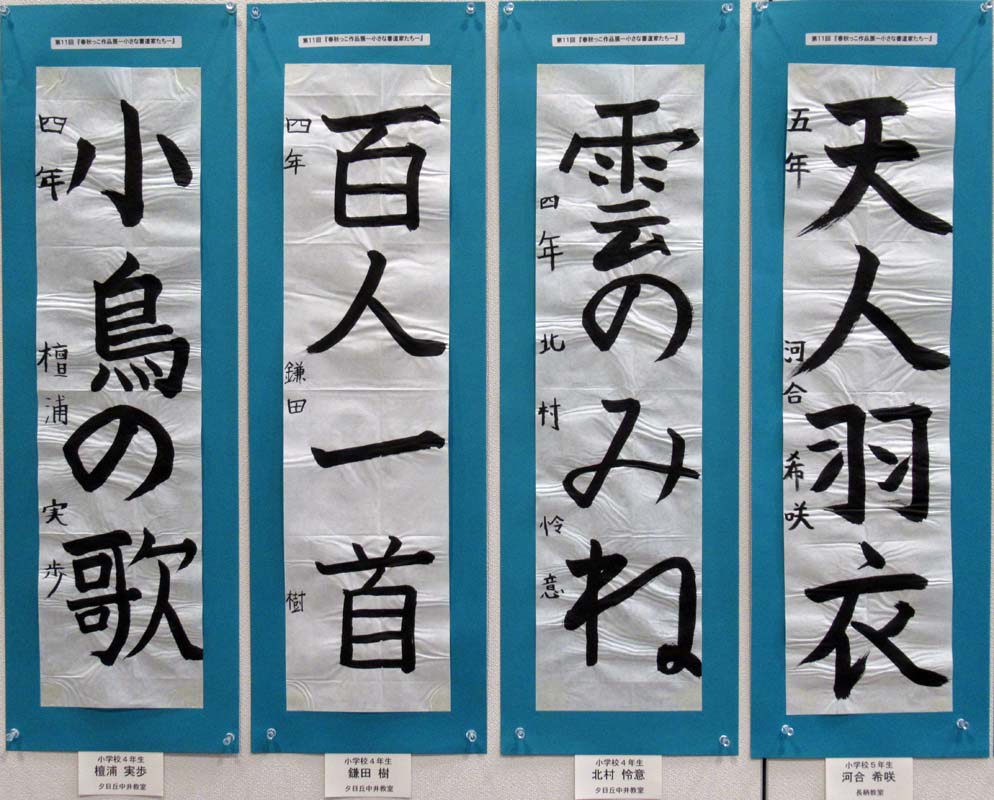 第11回『春秋っこ作品展ー小さな書道家たちー』
天人羽衣
五年 河合希咲
小学校5年生
河合 希咲
長柄教室
第11回『春秋っこ作品展ー小さな書道家たちー』
雲のみね
四年 北村怜意
小学校4年生
北村 怜意
夕日丘中井教室
第11回『春秋っこ作品展ー小さな書道家たちー』
百人一首
四年 鎌田樹
小学校4年生
鎌田 樹
夕日丘中井教室
第11回『春秋っこ作品展ー小さな書道家たちー』
小鳥の歌
四年 檀浦実歩
小学校4年生
檀浦 実歩
夕日丘中井教室